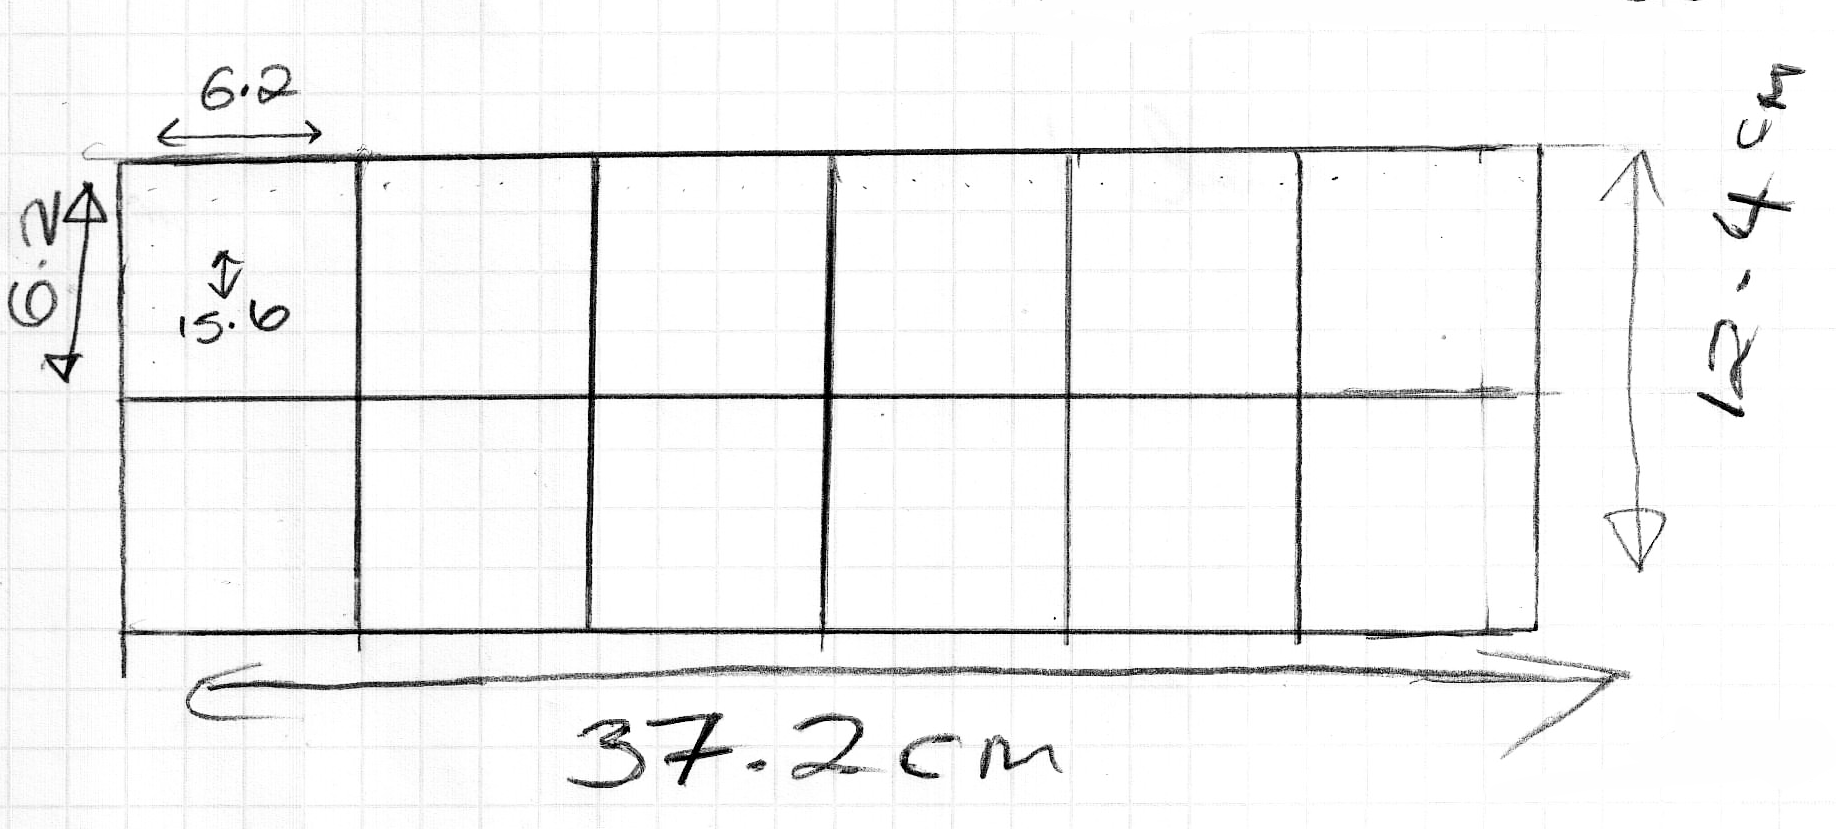 6.2
6.2
15.6
12.4 cm
37.2cm